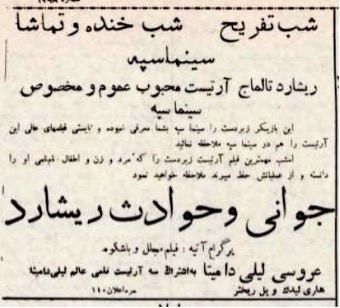 شب تفریح شب خنده و تماشا
سینما سپه
ریشارد تالماج آرتیست محبوب عموم و مخصوص
سینما سپه
این بازیگر زبردست را سینما سپه بشما معرفی نموده و بایستی فیلمهای عالی این
آرتیست را هم در سینما سپه ملاحظه نمائید
امشب مهمترین فیلم آرتیست زبردست را که مرد و زن و اطفال نام نامی او را
دانسته و از عملیاتش حظ میبرند ملاحظه خواهید نمود
جوانی و حوادث ریشارد
پرگرام آتیه : فیلم مجلل و باشکوه
عروسی لیلی دامیتا باشتراک سه آرتیست نامی عالم لیلی دامیتا
هاری لیدک و پل ریختر
نمره اعلان ۱۱۰